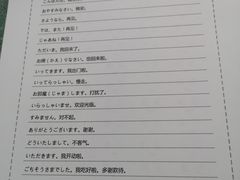 こんばんは。晚上好。
おやすみなさい。晚安。
さようなら。再见。
では、また！再见！
じゃあね！再见！
ただいま。我回来了。
お帰（かえ）りなさい。您回来啦。
いってきます。我出门啦。
いってらっしゃい。慢走。
お邪魔（じゃま）します。打扰了。
いらっしゃいませ。欢迎光临。
すみません。对不起。
ありがとうございます。谢谢。
どういたしまして。不客气。
いただきます。我开动啦。
ごちそうさまでした。我吃好啦，多谢款待。